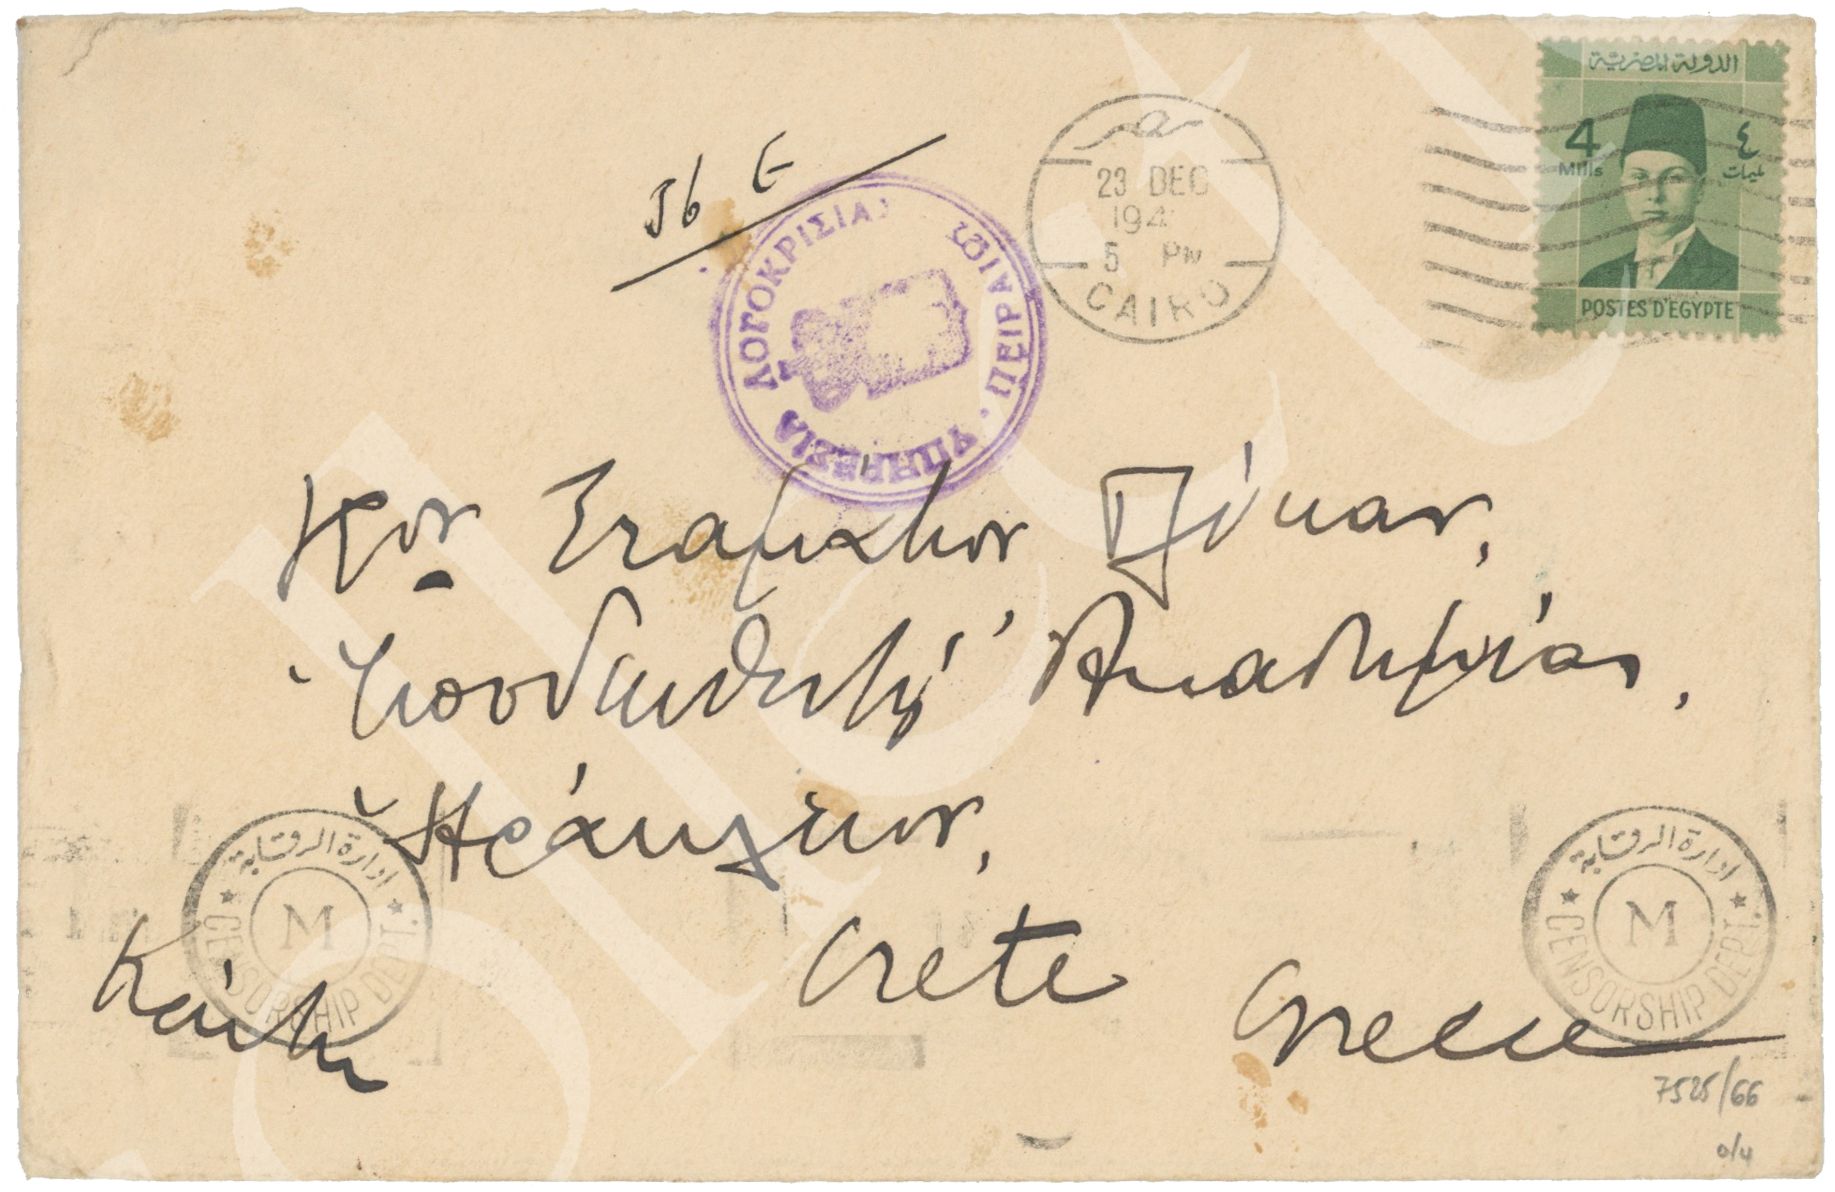 الدولة المصرية
4
٤
Mills
مليمات
POSTES D'EGYPTE
23 DEC
194
5 PM
CAIRO
ΥΠΗΡΕΣΙΑ ΛΟΓΟΚΡΙΣΙΑΣ ΠΕΙΡΑΙΩΣ
Κον Σταμάτιον
Ἀκαδημίας,
Ἡράκλειον,
Crete
Greece
ادارة الرقابة
M
CENSORSHIP DEPT.
ادارة الرقابة
M
CENSORSHIP DEPT.
7525/66